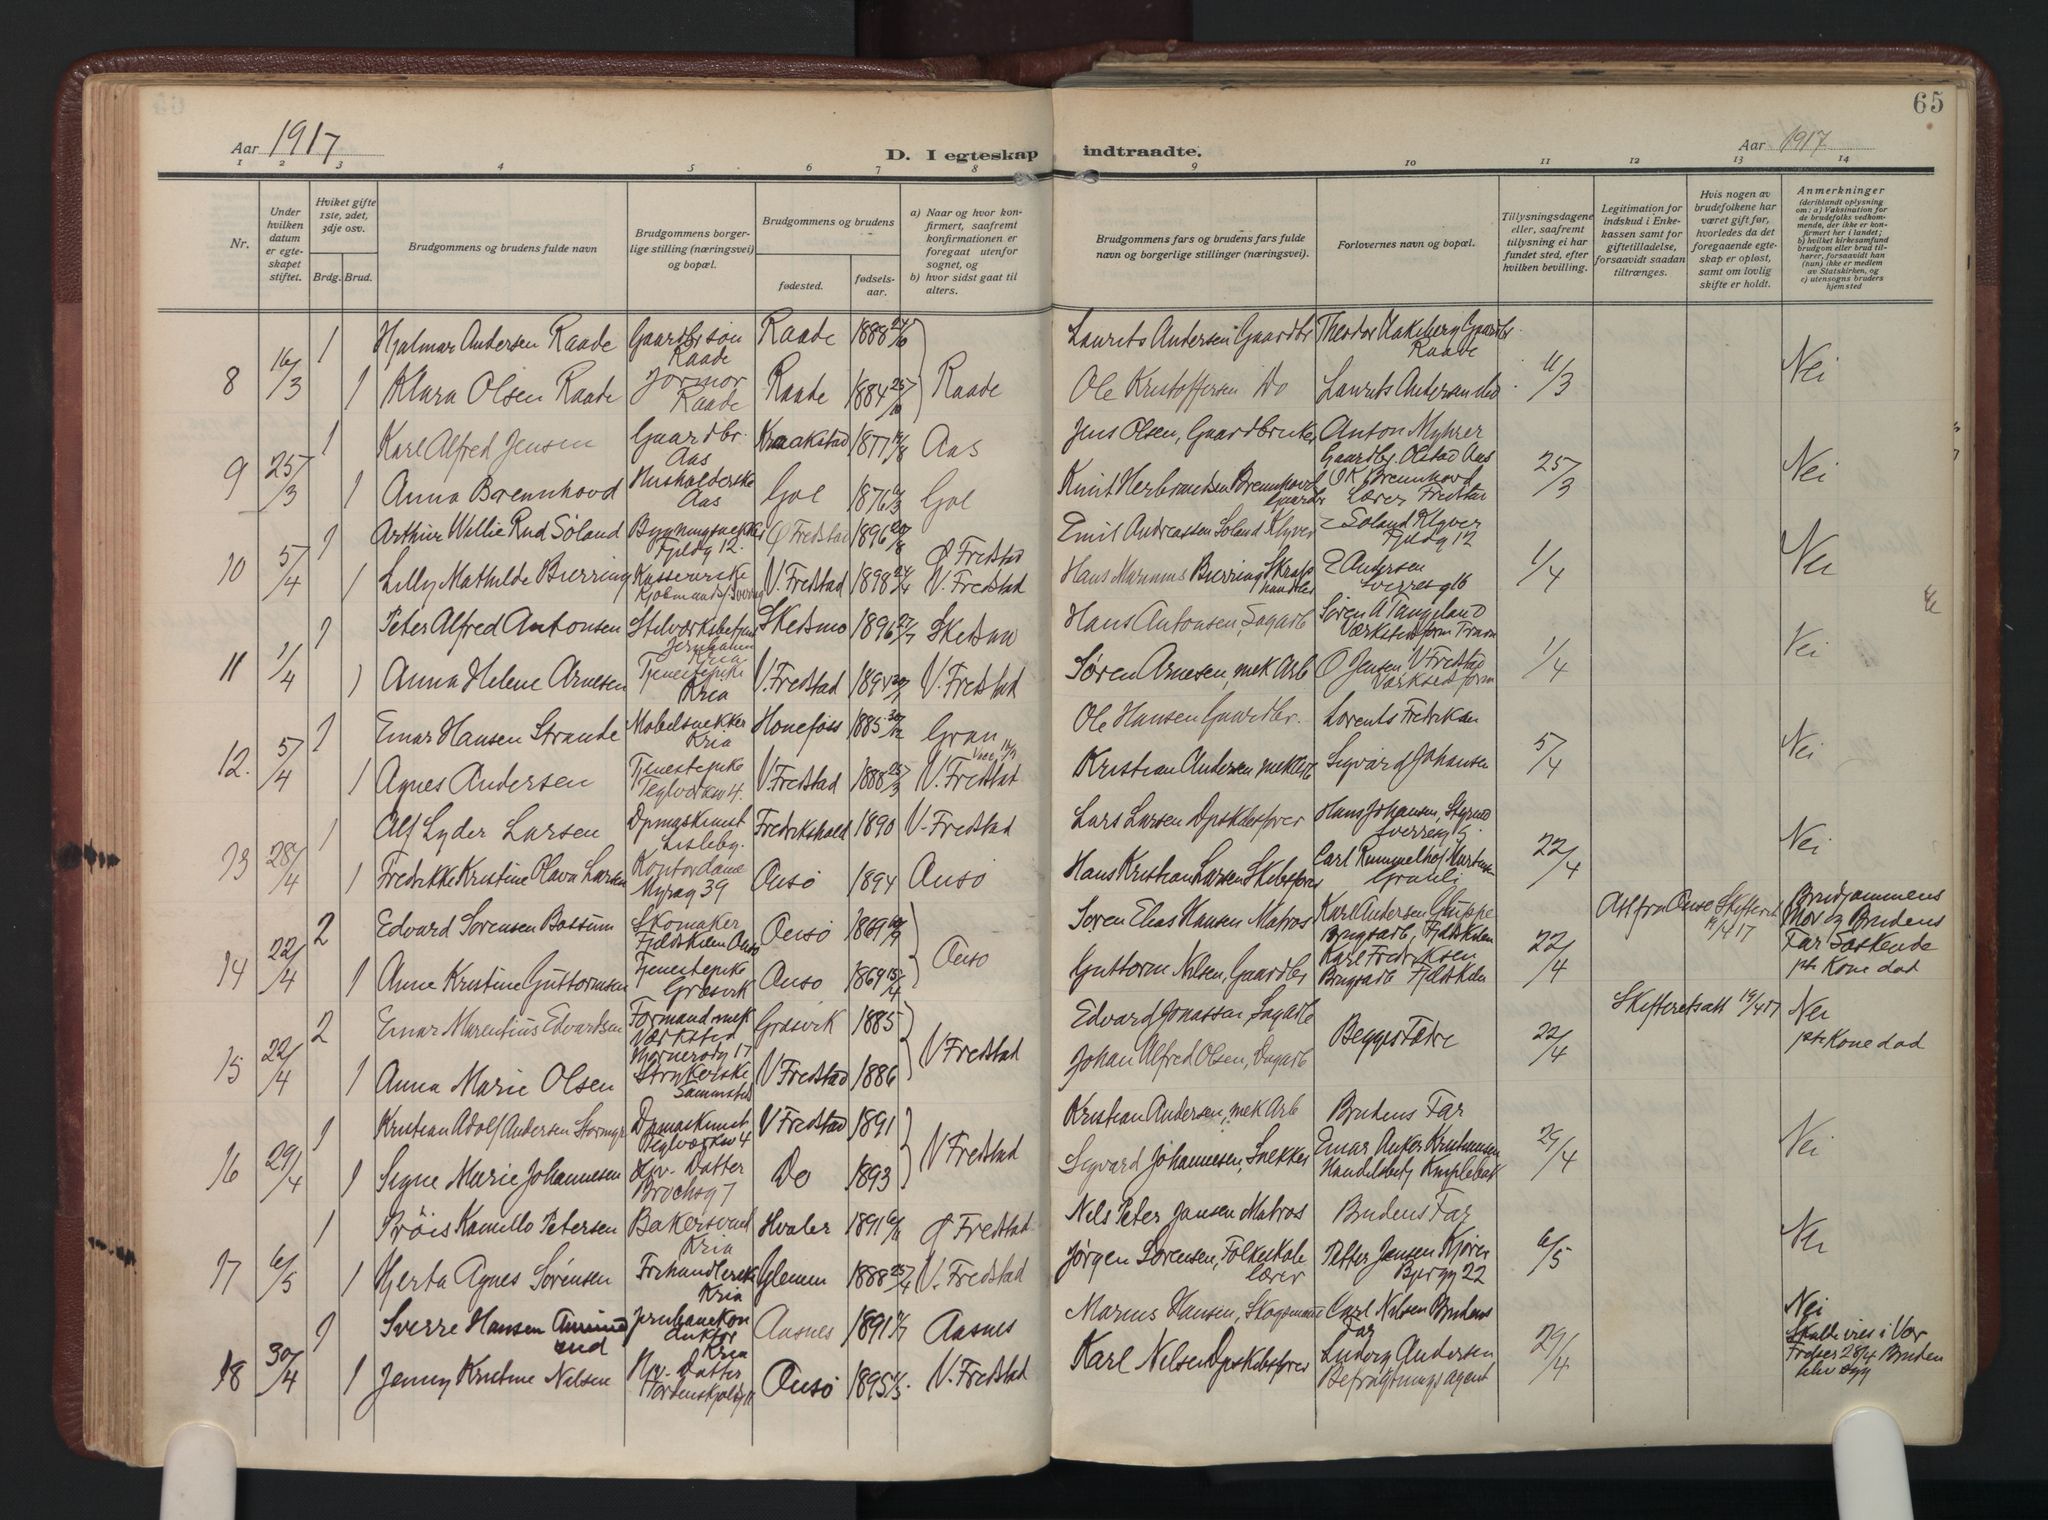 65
Aar 1917
D. I egteskap indtraadte.
Aar 1917
1 2 3 4 5 6 7 8 9 10 11 12 13 14
Nr.
Under hvilken datum er egteskapet stiftet.
Hvilket gifte 1ste, 2det, 3dje osv.
Brdg. Brud.
Brudgommens og brudens fulde navn
Brudgommens borgerlige stilling (næringsvei) og bopæl.
Brudgommens og brudens
fødested.
fødselsaar.
a) Naar og hvor konfirmert, saafremt konfirmationen er foregaat utenfor sognet, og
b) hvor sidst gaat til alters.
Brudgommens fars og brudens fars fulde navn og borgerlige stillinger (næringsvei).
Forlovernes navn og bopæl.
Tillysningsdagene eller, saafremt tillysning ei har fundet sted, efter hvilken bevilling.
Legitimation for indskud i Enkekassen samt for giftetilladelse, forsaavidt saadan tiltrænges.
Hvis nogen av brudefolkene har været gift før, hvorledes da det foregaaende egteskap er opløst, samt om lovlig skifte er holdt.
Anmerkninger (deriblandt oplysning om: a) Vaksination for de brudefolks vedkommende, der ikke er konfirmert her i landet; b) hvilket kirkesamfund brudgom eller brud tilhører, forsaavidt han (hun) ikke er medlem av Statskirken, og c) utensogns bruders hjemsted
8 16/3 1 Hjalmar Andersen Raade Gaardbr søn Raade Raade 1888 Laurits Andersen Gaardbr Theodor Raade 11/3 Nei
1 Klara Olsen Raade Jormor Raade Raade 1884 25/10 Raade Ole Kristoffersen Do Laurits Andersen
9 25/3 1 Karl Alfred Jensen Gaardbr. Aas Kraakstad 1877 Aas Jens Olsen, Gaardbruker Anton Myhrer Gaardbr. Olstad Aas 25/3 Nei
1 Anna Brennhovd Husholderske Aas Gol 1876 Gol Knut Herbrandsen Brennhovd Gaardbr O K Brennhovd Lærer Fredstad
10 5/4 1 Arthur Willie Rud Søland Bygningssnekker Fjeldg 12. Ø Fredstad 1896 Ø Fredstad Emil Andreassen Soland Klyver E Soland Klyver Fjeldg 12 1/4 Nei
1 Lilly Mathilde Bierring Kassererske V. Fredstad 1898 V. Fredstad Hans Marinius Bierring Skraphandler E Andersen Sverresg 16
11 1/4 1 Peter Alfred Antonsen Skedsmo 1896 Hans Antonsen, Sagarb Søren A Tangeland 1/4 Nei
1 Anna Helene Arnesen Tjenestepike Kria V. Fredstad V. Fredstad Søren Arnesen, mek Arb O Jensen V Fredstad
12. 5/4 1 Einar Hansen Strande Møbelsnekker Kria Honefoss 1885 30/12 Gran Ole Hansen Gaardbr. Lorents Fredriksen 5/4 Nei
1 Agnes Andersen Tjenestepike Teglverksv 4. V. Fredstad 1888 25/3 V. Fredstad Kristian Andersen mek Arb Sigvard Johansen
13 28/4 1 Alf Lyder Larsen Dpmaskinist Lisleby. Fredrikshald 1890 V. Fredstad Lars Larsen Dpskibsfører Hans Johansen, Styrmd Sverresg 9. 22/4 Nei
1 Fredrikke Kristine Olava Larsen Kontordame Myrag 39 Onsø 1894 Onsø Hans Kristian Larsen Skibsfører Carl Rummelhof Martinsen
14 22/4 2 Edvard Sørensen Bossum Skomaker Fjeldskilen Onsø Onsø 1869 Søren Elias Hansen Matros Karl Andersen Gluppe Brugsarb, Fjeldskilen 22/4 Att fra Onsø Skifteret 19/4 17 Brudgommens Mor og Brudens Far Søskende
1 Anne Kristine Guttormsen Tjenestepike Græsvik Onsø 1869 15/4 Onsø Guttorm Nilsen, Gaardbr Karl Fredriksen Brugsarb Fjeldskilen 1ste Kone død
15 22/4 2 Einar Marentius Edvardsen Formand mek Værksted Græsvik 1885 Edvard Jonassen, Sagarb Begges Fædre 22/4 Skifteretsatt 19/4 17 Nei
1ste Kone død
1 Anna Marie Olsen Strykerske Sammested V Fredstad 1886 V Fredstad Johan Alfred Olsen, Dagarb
16 29/4 1 Kristian Adolf Andersen Stormyr Dpmaskinist Teglverksv 4 V Fredstad 1891 Kristian Andersen, mek Arb Brudens Far 29/4 Nei
1 Signe Marie Johannesen Hjv. Datter Brochsg 7 Do 1893 V Fredstad Sigvard Johannesen, Snekker Einar Anker Kristiansen
17 6/5 1 Kamillo Petersen Bakersvend Kria Hvaler 1891 Ø Fredstad Nils Peter Jansen Matros Brudens Far 6/5 Nei
1 Hjerta Agnes Sørensen Frihandlerske Kria Glemm 1888 25/4 V. Fredstad Jørgen Sørensen, Folkeskolelærer Petter Jansen Kjøren Bjergg 22
18 30/4 1 Sverre Hansen Jernbanekonduktør Kria Aasnes 1891 Aasnes Marius Hansen, Skogsmand Carl Nilsen Brudens Far 29/4 Nei
Skulde vies i Vor Frelser 28/4 Bruden blev syg
1 Jenny Kristine Nilsen Hjv. Datter Onsø 1895 V. Fredstad Karl Nilsen Dpskibsfører Ludvig Andersen Befragtningsagent